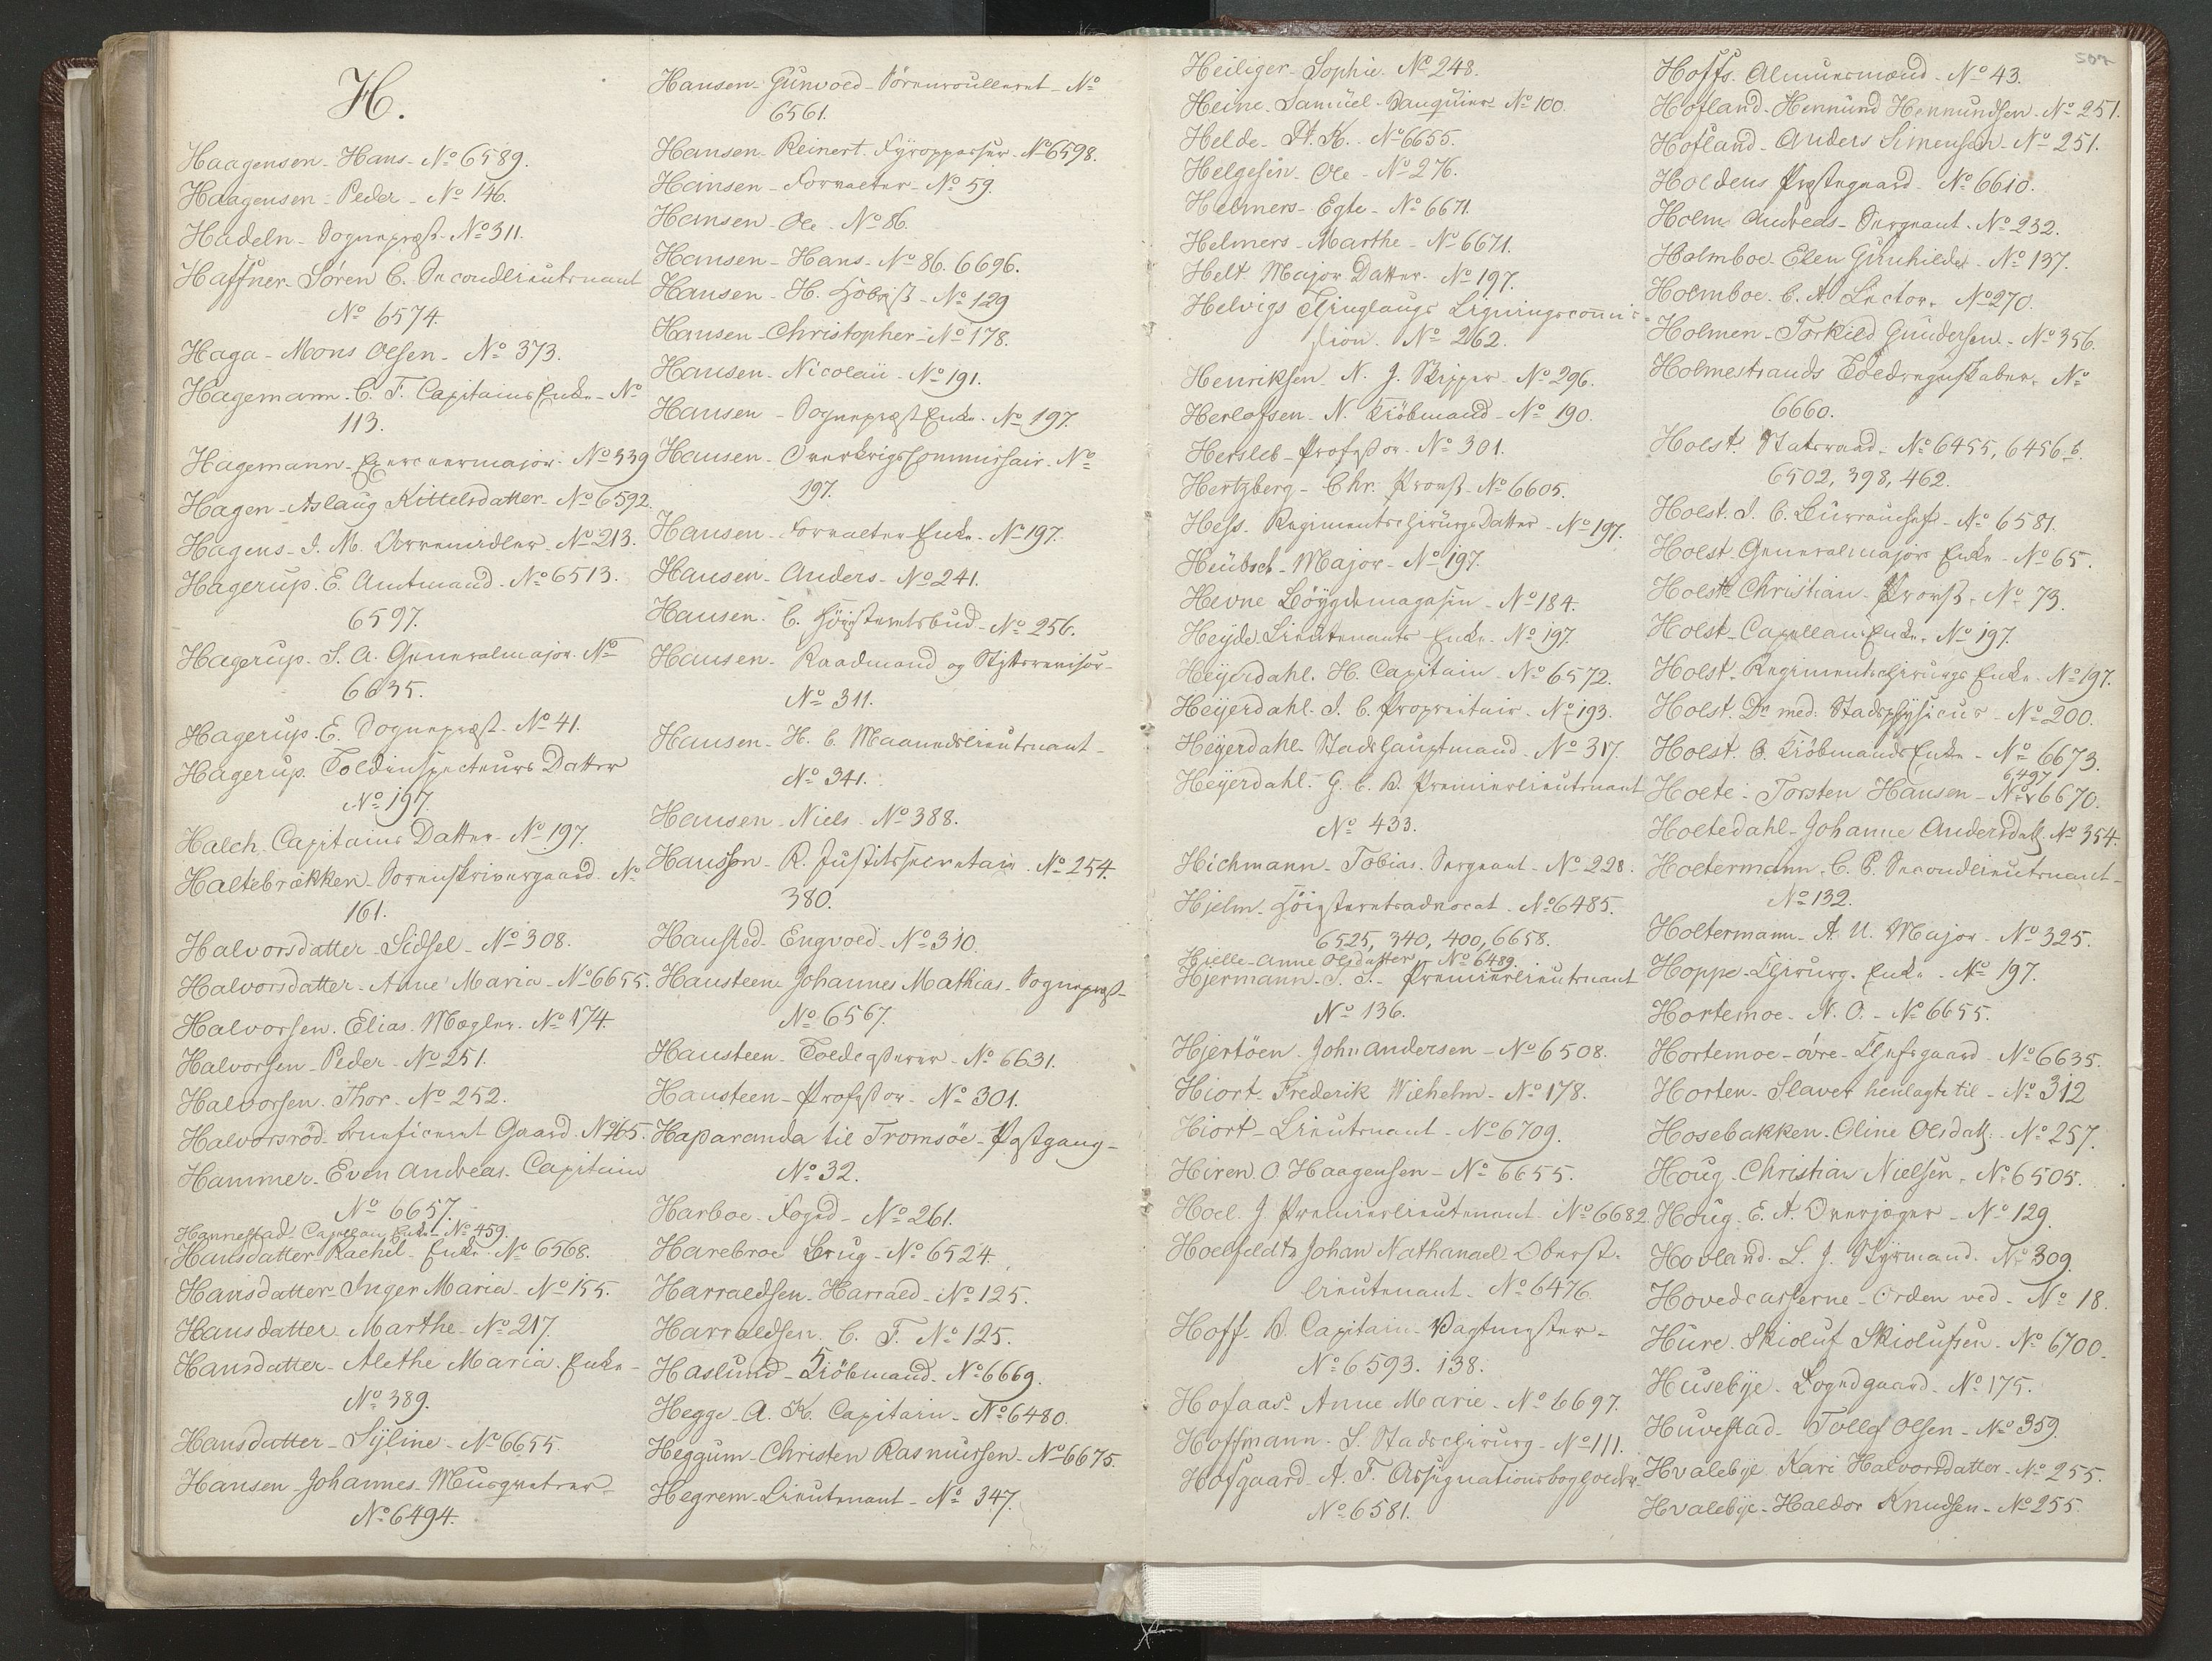 H.
Haagensen - Hans - No 6589.
Haagensen - Peder - No 146.
Hadeln - Sognepræst - No 311.
Haffner - Søren C. Secondlieutenant
No 6574.
Haga - Mons Olsen - No 373.
Hagemann - C. F. Capitains Enke - No
113.
Hagemann - Exerceermajor - No 339
Hagen - Aslaug Kittelsdatter - No 6592.
Hagens - J. M. Urremidler - No 213.
Hagerup. E. Amtmand - No 6513.
6597.
Hagerup. S. A. Generalmajor. No
6635.
Hagerup. E. Sognepræst - No 41.
Hagerup. Toldinspecteurs Datter
No 197.
Halch. Capitains Datter - No 197.
Haltebrækken - Sorenskrivergaard. No
161.
Halvorsdatter - Sidsel - No 308.
Halvorsdatter - Anne Maria - No 6655.
Halvorsen. Elias. Mægler. No 174.
Halvorsen - Peder - No 251.
Halvorsen. Thor - No 252.
Halvorsrød - beneficeret Gaard. No 165.
Hammer - Even Andreas. Capitain
No 6657.
Hannestad - Capellan Enke - No 459.
Hansdatter - Rachel - Enke - No 6568.
Hansdatter - Inger Maria - No 155.
Hansdatter - Marthe - No 217.
Hansdatter - Alethe Maria. Enke -
No 389.
Hansdatter - Syline - No 6655.
Hansen - Johannes - Musqueteer -
No 6494.
Hansen - Gunvold - Sørenroulleret - No
6561.
Hansen - Reinert. Fyropparser - No 6598.
Hansen - Forvalter - No 59.
Hansen - Ole - No 86.
Hansen - Hans - No 86. 6696.
Hansen - H. Hobo­ist - No 129
Hansen - Christopher - No 178.
Hansen - Nicolaii - No 191.
Hansen - Sognepræst Enke. No 197.
Hansen - Overkrigscommissair. No
197.
Hansen - Forvalter Enke. No 197.
Hansen - Anders - No 241.
Hansen. C. Høiesteretsbud - No 256.
Hansen - Raadmand og Stiftsrevisor -
No 311.
Hansen - H. C. Maanedslieutenant -
No 341.
Hansen - Niels - No 388.
Hansson - R. Justitssecretair. No 254.
380.
Hansted - Engvold - No 310.
Hansteen Johannes Mathias - Sognepræst -
No 6567.
Hansteen - Toldcasserer - No 6631.
Hansteen - Professor - No 301.
Haparanda til Tromsøe - Postgang -
No 32.
Harboe - Foged - No 261.
Harebroe Brug - No 6524.
Harraldsen - Harrald - No 125.
Harraldsen. C. F. No 125.
Haslund - Kiöbmand. No 6669.
Hegge - A. K. Capitain - No 6480.
Heggum - Christen Rasmussen - No 6675.
Hegrem - Lieutenant - No 347.
507
Heiliger - Sophie. No 248.
Heine. Samuel - Banquier No 100.
Helde - H. K. No 6655.
Helgesen - Ole - No 276.
Helmers - Egte - No 6671.
Helmers - Marthe - No 6671.
Helt Major Datter - No 197.
Helvigs Thinglaugs Ligningscommis-
sion. No 262.
Henriksen - N. J. Skipper - No 296.
Herlofsen - N. Kiöbmand - No 190.
Hersleb - Professor - No 301.
Hertzberg - Chr. Provst - No 6605.
Hess - Regimentschirurgs Datter - No 197.
Heübsch - Major - No 197.
Hevne Bøygdemagasin - No 184.
Heyde Lieutenants Enke - No 197.
Heyerdahl. H. Capitain - No 6572.
Heyerdahl - J. C. Proprietair - No 193.
Heyerdahl - Stadshauptmand - No 317.
Heyerdahl - G. C. B. Premierlieutenant
No 433.
Hichmann - Tobias. Sergeant - No 228.
Hjelm - Høiesteretsadvocat - No 6485.
6525, 340, 400, 6658.
Hielle - Anne Olsdatter - No 6489.
Hjermann - S. S. - Premierlieutenant
No 136.
Hjertöen. John Andersen - No 6508.
Hiort - Frederik Wilhelm - No 178.
Hiort - Lieutenant - No 6709.
Hiren. O. Haagensen - No 6655.
Hoel. J. Premierlieutenant. No 6682.
Hoelfeldt Johan Nathanael Oberst-
lieutenant - No 6476.
Hoff. B. Capitain - Vagtmester -
No 6593. 138.
Hofaas - Anne Marie - No 6697.
Hoffmann - S. Stadschirurg - No 111.
Hofgaard - A. F. Assignationsbogholder
No 6581.
Hoffs. Almuemænd - No 43.
Hofland - Hermund Hermundsen - No 251.
Hofland - Anders Simensen - No 251.
Holdens Præstegaard - No 6610.
Holm Andreas - Sergeant - No 232.
Holmboe Elen Gunhilde - No 137.
Holmboe. C. A. Lector - No 270.
Holmen - Torkild Gundersen - No 356.
Holmestrands Toldregnskaber. No
6660.
Holst. Statsraad - No 6455, 6456 b.
6502, 398, 462.
Holst. J. C. Bureauchef - No 6581.
Holst Generalmajors Enke - No 65.
Holst Christian - Provst - No 73.
Holst - Capellan Enke. No 197.
Holst - Regimentschirurgs Enke - No 197.
Holst. Dr med: Stadsphysicus - No 200.
Holst. B. Kiöbmands Enke - No 6673.
6497,
Holte - Torsten Hansen - No 6670.
Holtedahl - Johanne Andersdatt. No 354.
Holtermann. C. P. Secondlieutenant -
No 132.
Holtermann - A. U. Major - No 325.
Hoppe - Chirurg. Enke - No 197.
Hortemoe - N. O. - No 6655.
Hortemoe - övre - Chefsgaard - No 6635.
Horten - Slaver henlagte til - No 312
Hosebakken - Oline Olsdatt. - No 257.
Houg - Christian Nielsen. No 6505.
Houg. E. A. Overjæger - No 129.
Hovland. L. J. Styrmand. No 309.
Hovedcasserne - Orden ved - No 18.
Hure - Skioluf Skiolufsen - No 6700.
Husebye. Fogedgaard - No 175.
Huvestad - Tollef Olsen - No 359.
Hvalebye Kari Halvorsdatter - No 255.
Hvalebye - Haldor Knudsen - No 255.